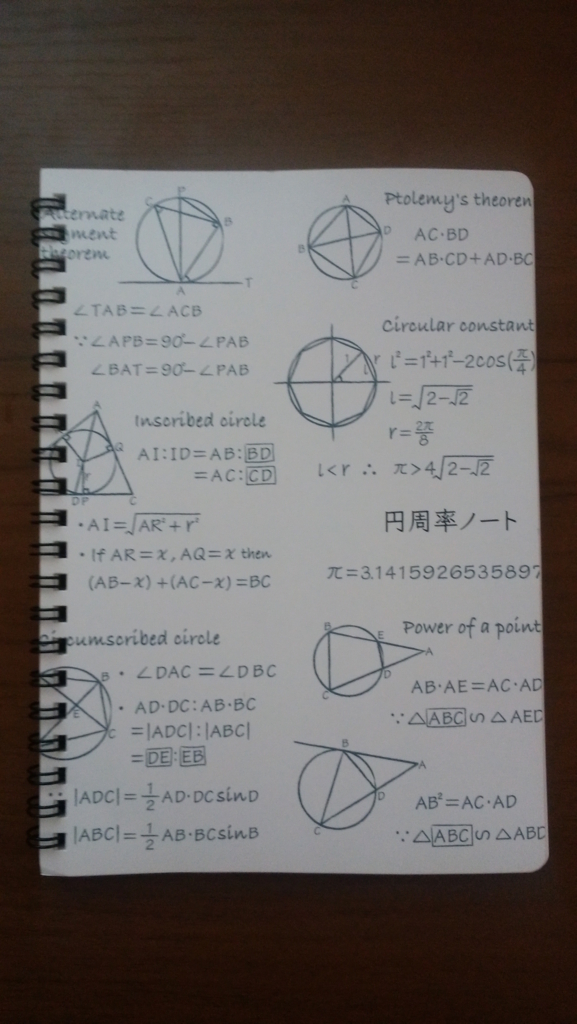 Alternate
segment
theorem
P
C
B
A
T
∠TAB=∠ACB
∵∠APB=90°-∠PAB
∠BAT=90°-∠PAB
Inscribed circle
A
Q
I
r
D P
C
AI:ID=AB:BD
=AC:CD
・AI=√AR²+r²
・If AR=x, AQ=x then
(AB-x)+(AC-x)=BC
Circumscribed circle
B
E
C
・∠DAC=∠DBC
・AD·DC:AB·BC
=|ADC|:|ABC|
=DE:EB
∵|ADC|=1/2 AD·DCsinD
|ABC|=1/2 AB·BCsinB
Ptolemy's theorem
A
D
B
C
AC·BD
=AB·CD+AD·BC
Circular constant
1
r
l
l²=1²+1²-2cos(π/4)
l=√2-√2
r=2π/8
l<r ∴ π>4√2-√2
円周率ノート
π=3.1415926535897
Power of a point
B
E
A
D
C
AB·AE=AC·AD
∵△ABC∽△AED
B
A
D
C
AB²=AC·AD
∵△ABC∽△ABD